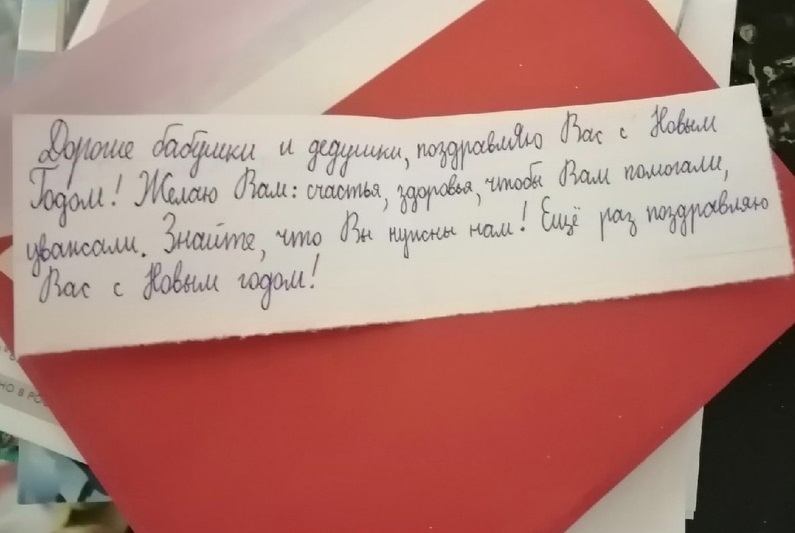 Дорогие бабушки и дедушки, поздравляю Вас с Новым
Годом! Желаю Вам: счастья, здоровья, чтобы Вам помогали,
уважали. Знайте, что Вы нужны нам! Ещё раз поздравляю
Вас с Новым годом!
НО В РО